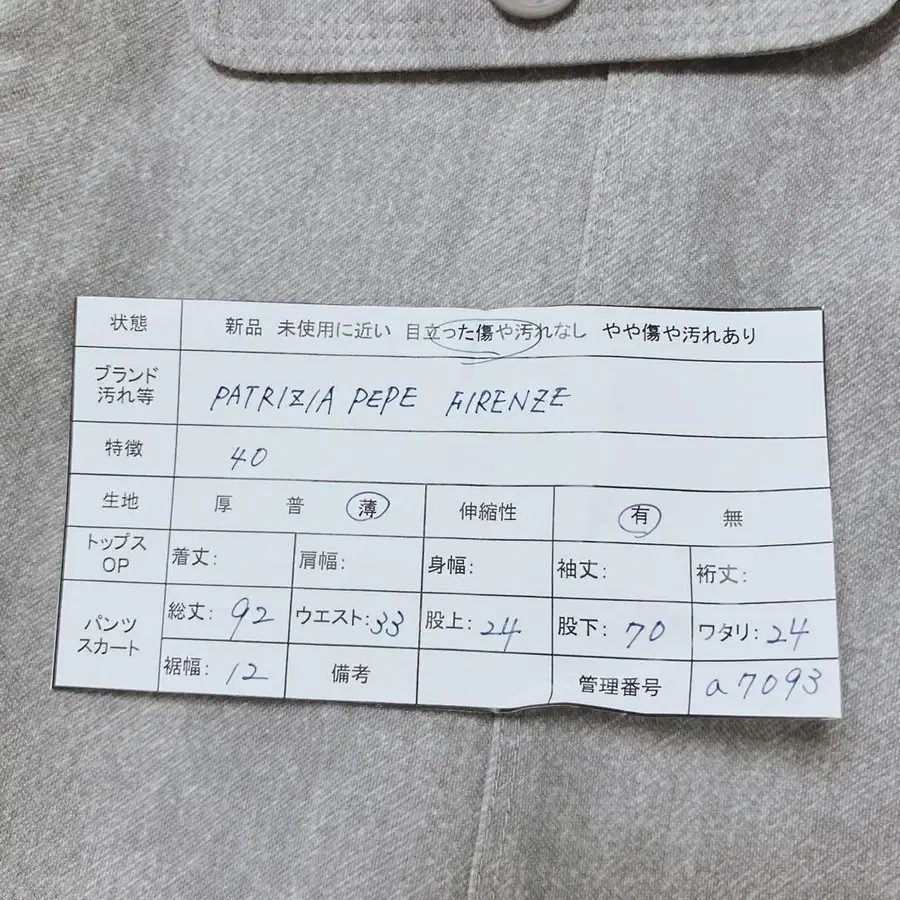 状態 新品 未使用に近い 目立った傷や汚れなし やや傷や汚れあり
ブランド
汚れ等 PATRIZIA PEPE FIRENZE
特徴 40
生地 厚 普 薄 伸縮性 有 無
トップス
OP 着丈: 肩幅: 身幅: 袖丈: 裄丈:
パンツ
スカート 総丈: 92 ウエスト: 33 股上: 24 股下: 70 ワタリ: 24
裾幅: 12 備考 管理番号 a7093